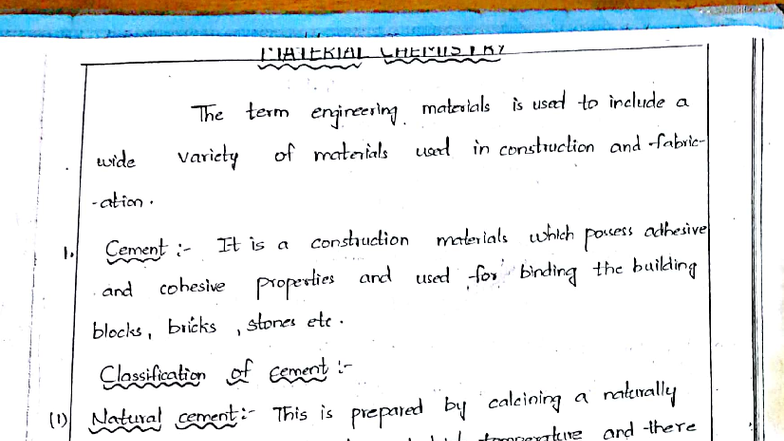 MATERIAL CHEMISTRY
The term engineering materials is used to include a
wide variety of materials used in construction and fabric-
-ation.
1. Cement :- It is a construction materials which possess adhesive
and cohesive properties and used for binding the building
blocks, bricks, stones etc.
Classification of cement :-
(1) Natural cement:- This is prepared by calcining a naturally
temperature and there